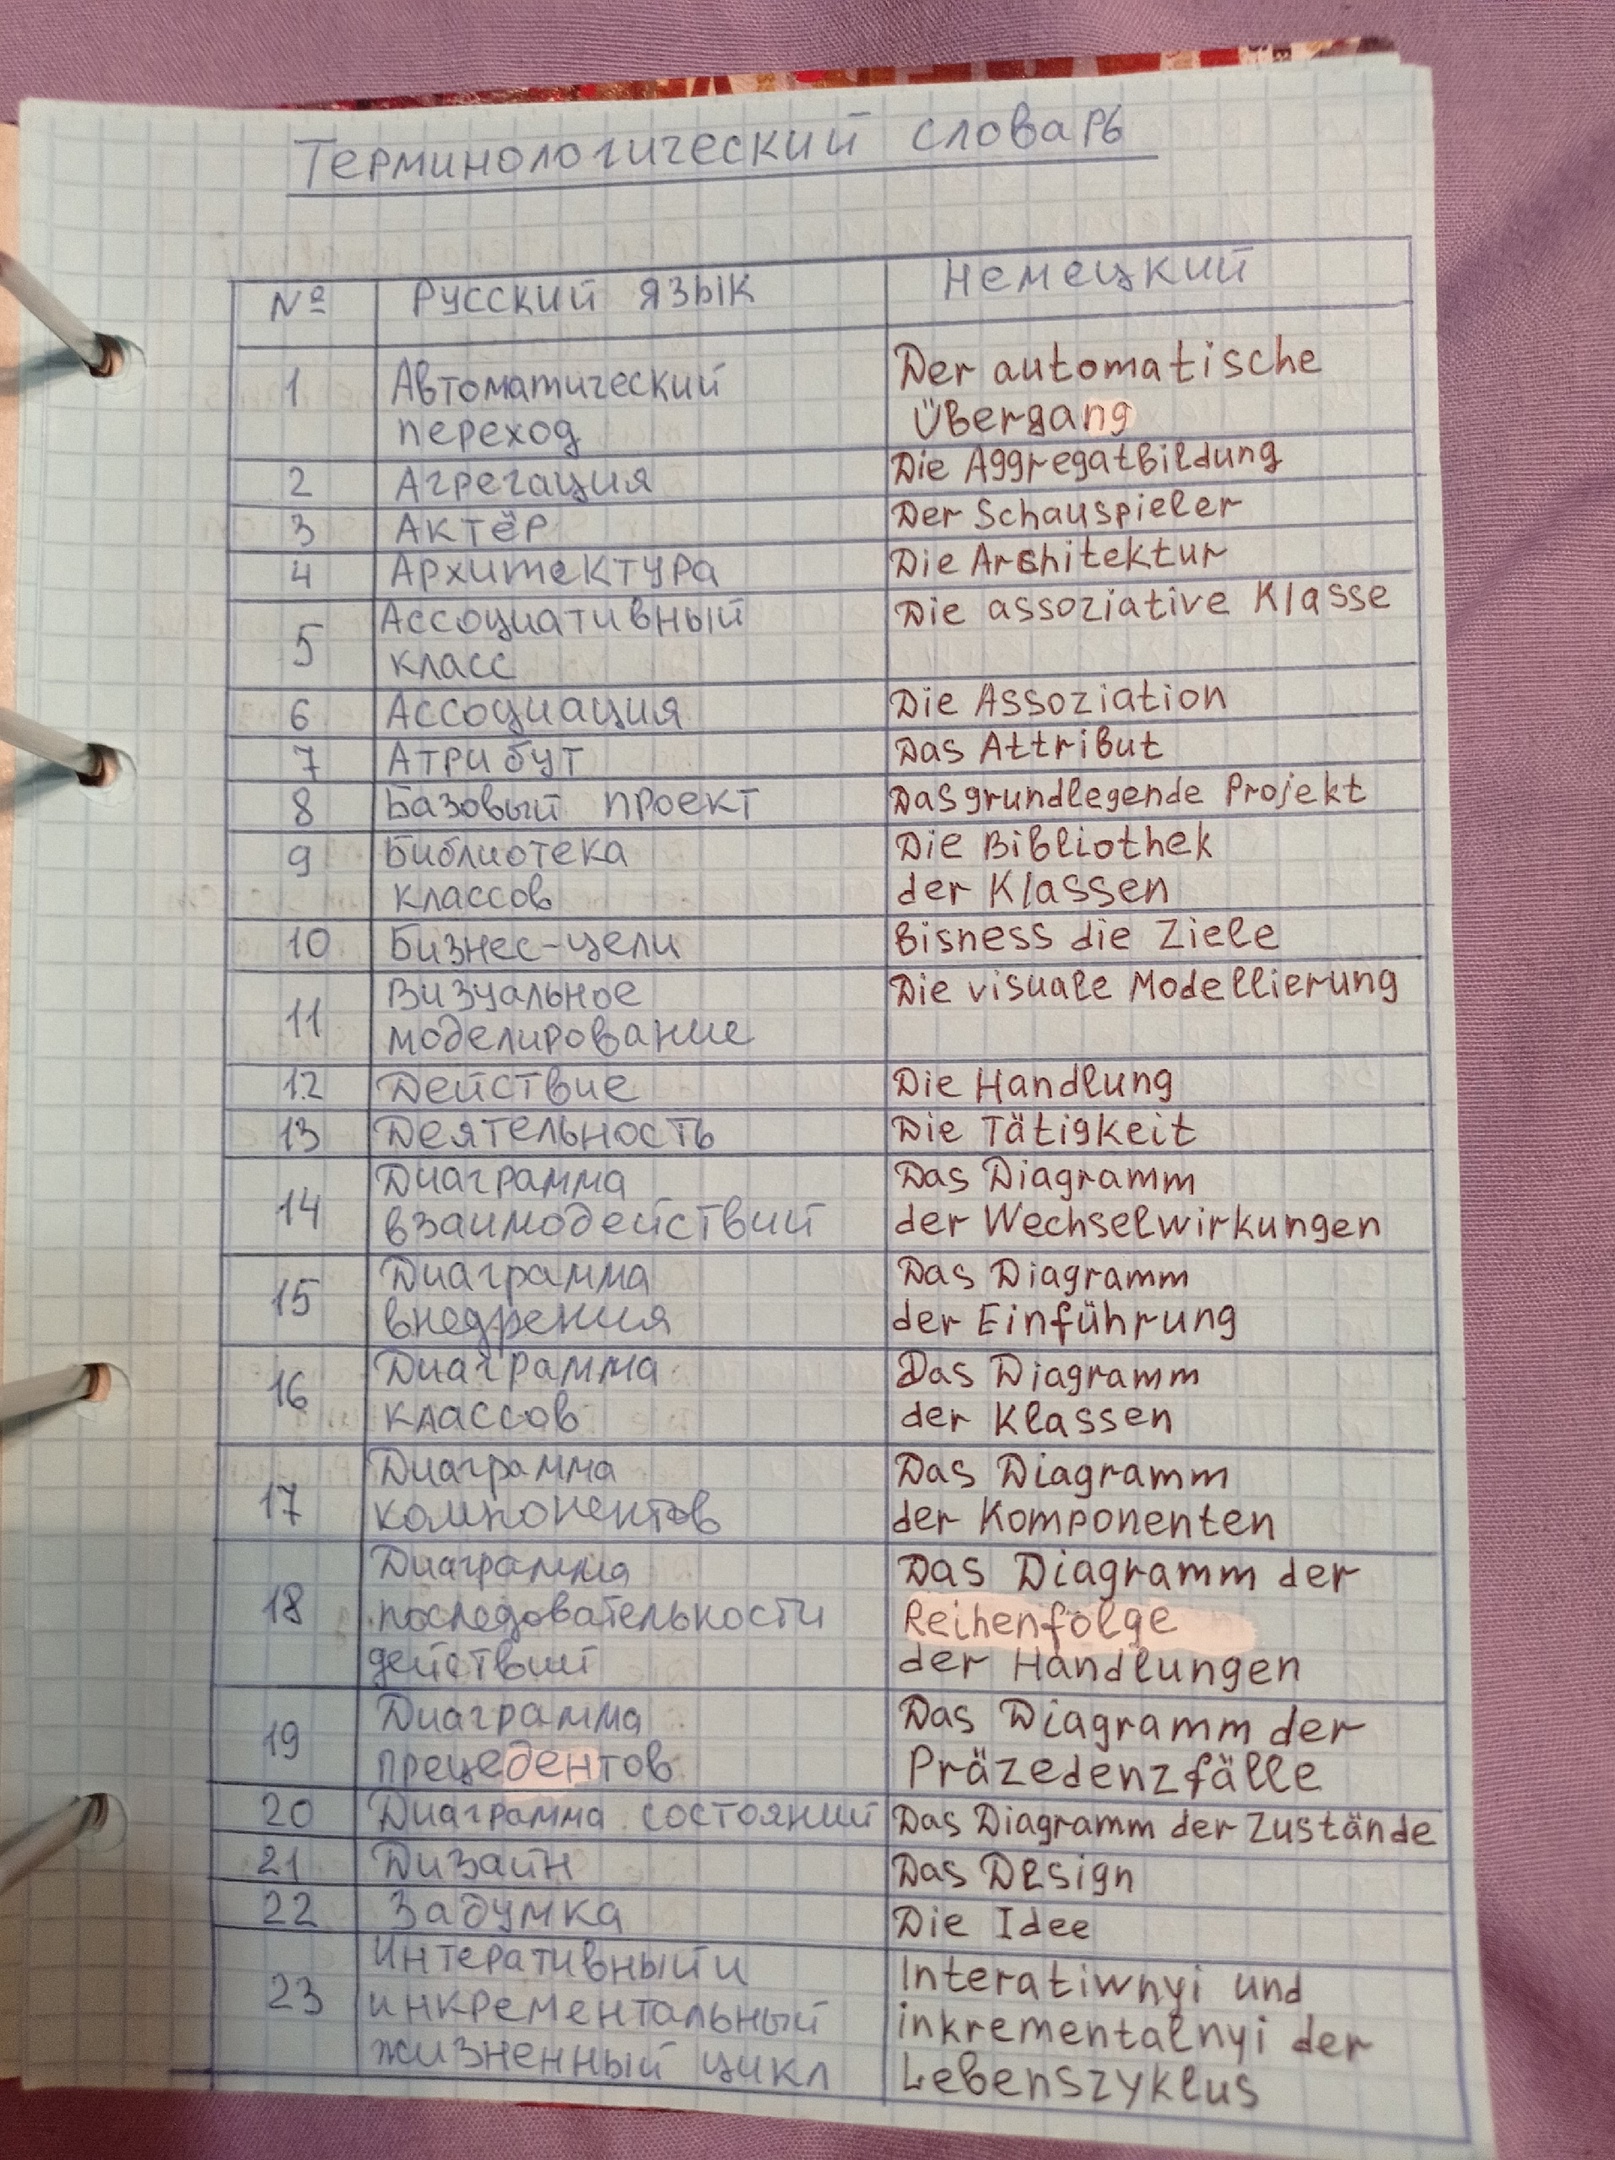 Терминологический словарь
№ Русский язык Немецкий
1 Автоматический переход Der automatische Übergang
2 Агрегация Die Aggregatbildung
3 Актёр Der Schauspieler
4 Архитектура Die Architektur
5 Ассоциативный класс Die assoziative Klasse
6 Ассоциация Die Assoziation
7 Атрибут Das Attribut
8 Базовый проект Das grundlegende Projekt
9 Библиотека классов Die Bibliothek der Klassen
10 Бизнес-цели Bisness die Ziele
11 Визуальное моделирование Die visuale Modellierung
12 Действие Die Handlung
13 Деятельность Die Tätigkeit
14 Диаграмма взаимодействий Das Diagramm der Wechselwirkungen
15 Диаграмма внедрения Das Diagramm der Einführung
16 Диаграмма классов Das Diagramm der Klassen
17 Диаграмма компонентов Das Diagramm der Komponenten
18 Диаграмма последовательности действий Das Diagramm der Reihenfolge der Handlungen
19 Диаграмма прецедентов Das Diagramm der Präzedenzfälle
20 Диаграмма состояний Das Diagramm der Zustände
21 Дизайн Das Design
22 Задумка Die Idee
23 Интеративный и инкрементальный жизненный цикл Interatiwnyi und inkrementalnyi der Lebenszyklus